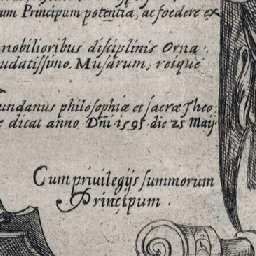 um Principum potentia, ac foedere ex
nobilioribus disciplinis Orna
udatissimo. Musarum, rosque
undanus philosophiæ et sacræ Theo
e dicat anno Dni 1595 die 25 Maij
Cum privilegijs summorum
Principum.